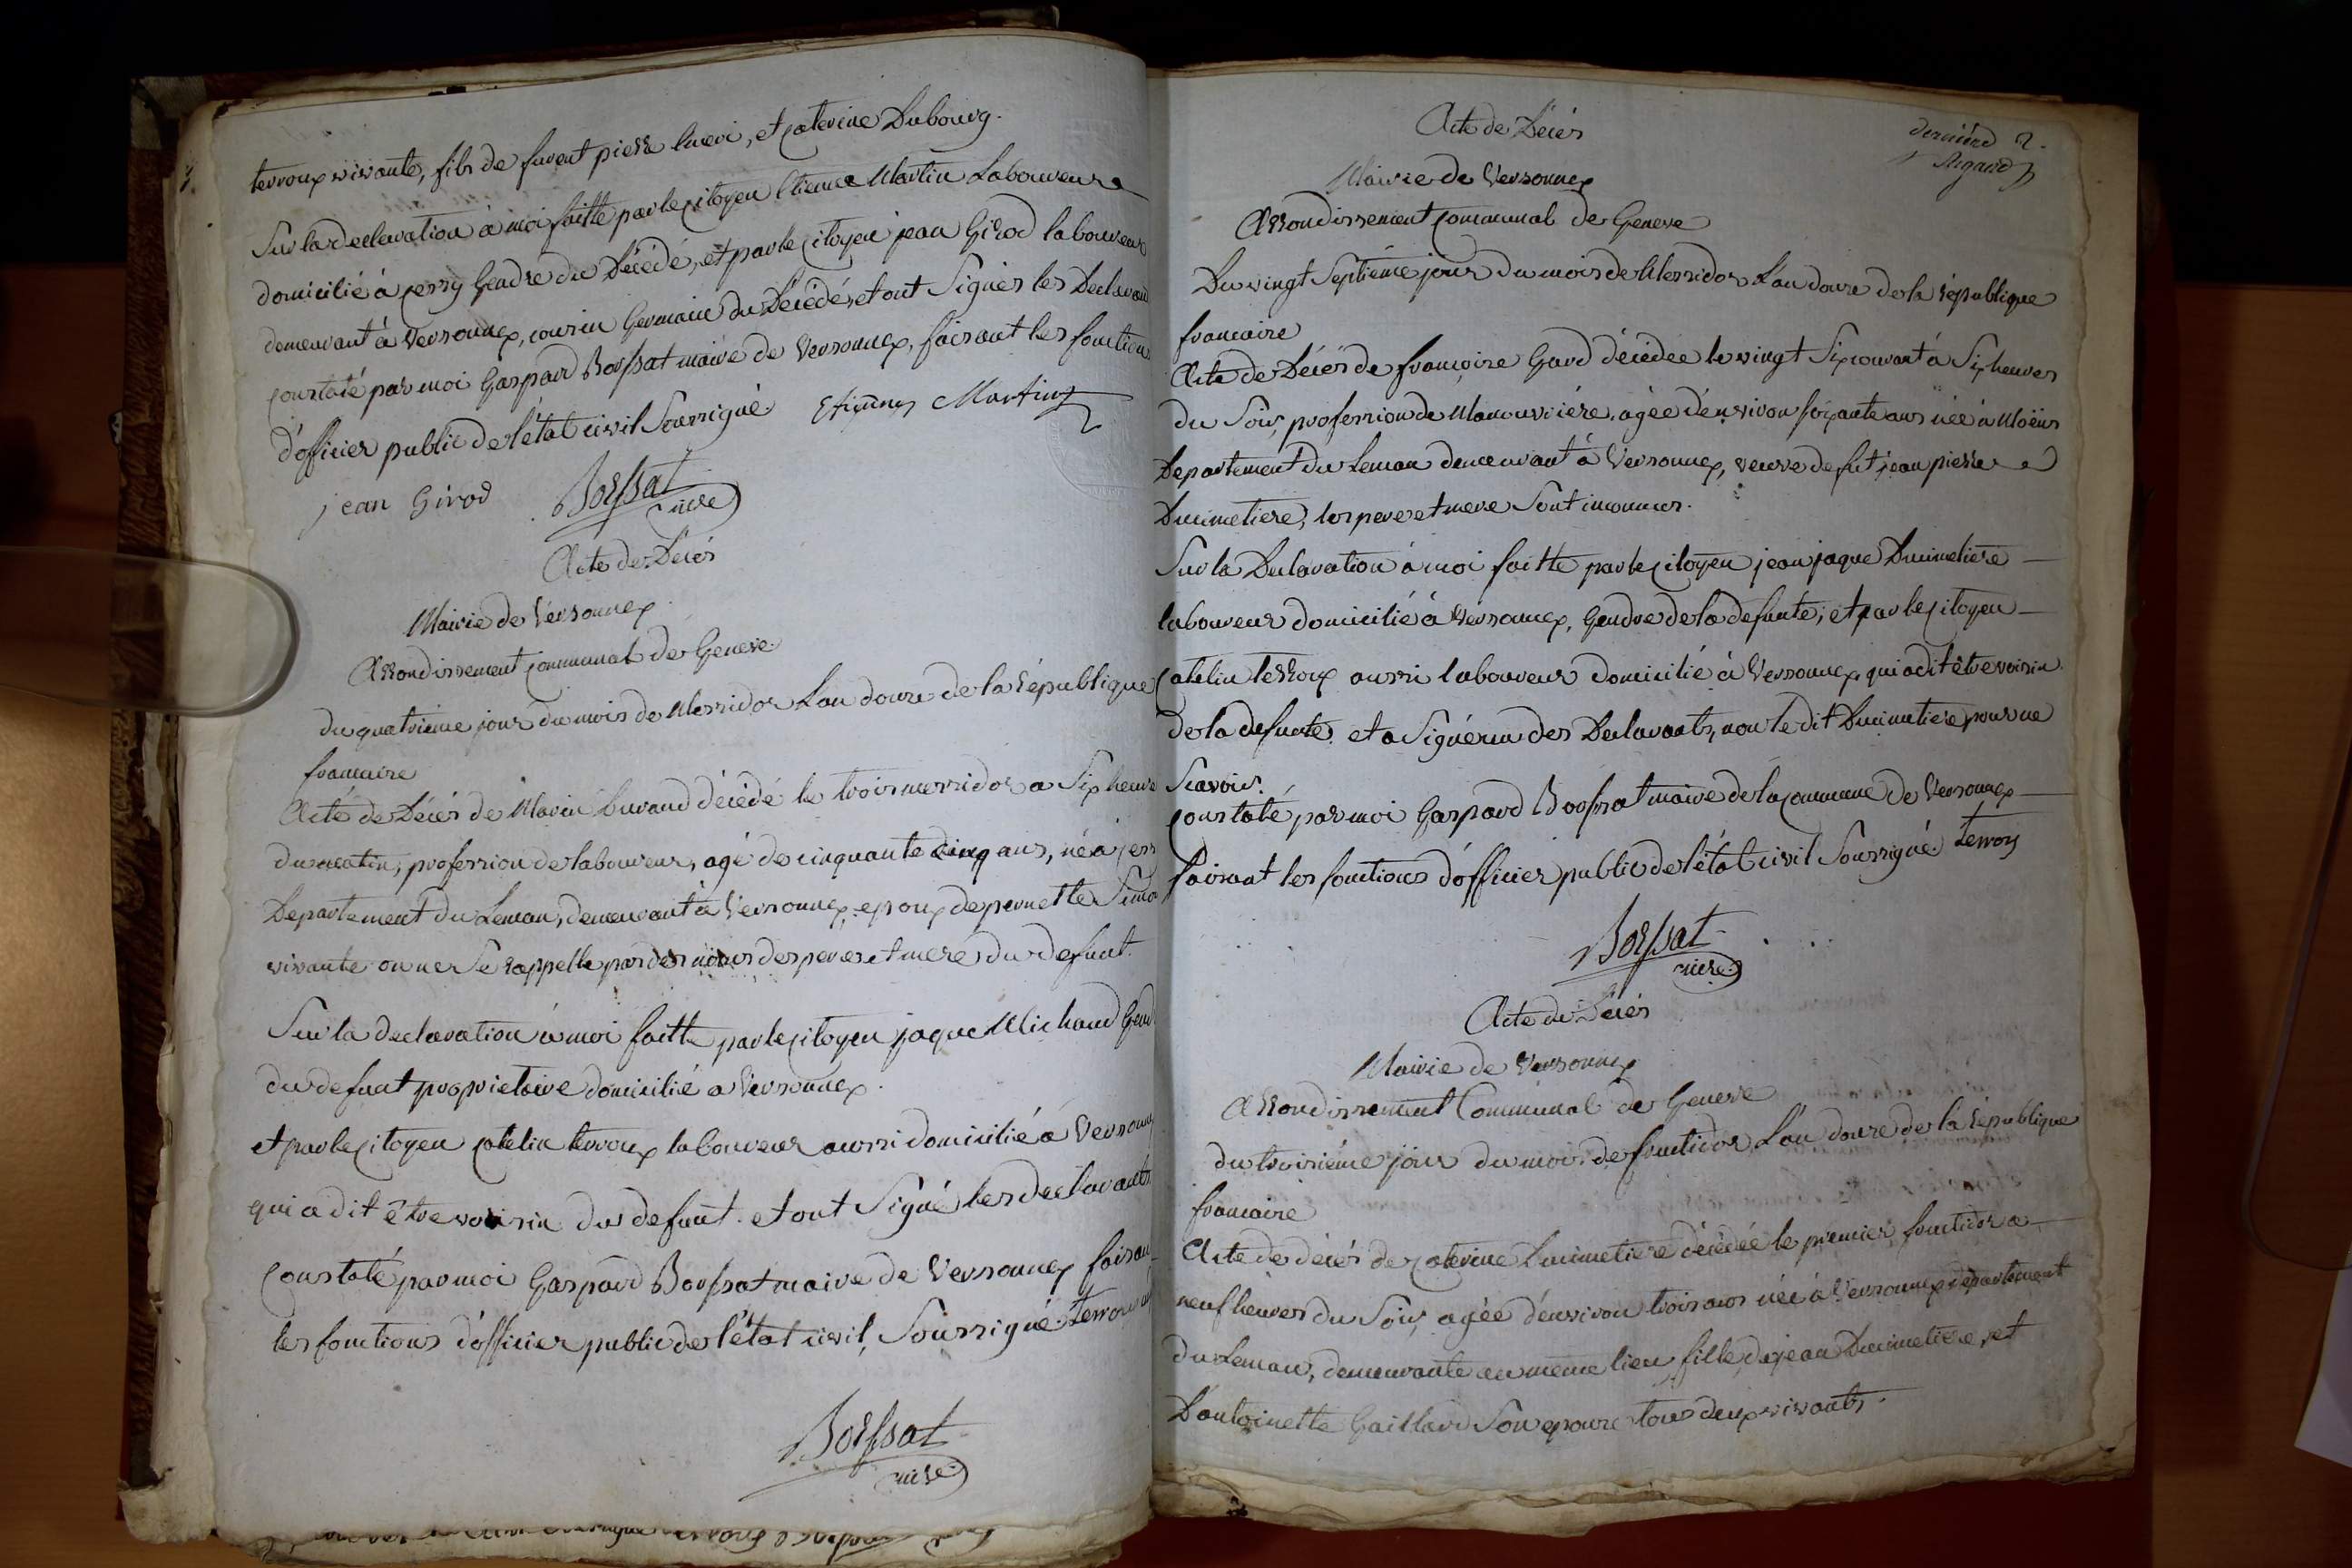 terroux vivante, fils de furent pierre lneri, et caterine Dubourg.
Sur la declaration à moi faitte par le citoyen Etienne Martin Laboureur
domicilié à cessy Gendre du Décédé, et par le citoyen jean Girod laboureur
demeurant à Versonnex, cousin Germain du Décédé, et ont Signés les Declarant
constaté par moi Gaspard Borssat maire de Versonnex, faisant les fonctions
d'officier public de l'état civil Soussigné. Etienne Martin
jean Girod Borssat
mere
Acte de Décés
Mairie de Versonnex
Arrondissement communal de Geneve
du quatrieme jour du mois de Messidor L'an douze de la République
francaise
Acte de Décés de Marin buvand décédé le trois messidor a Six heure
du matin, profession de laboureur, agé de cinquante cinq ans, né à
Departement du Leman, demeurant à Versonnex epoux de pernette
vivante on ne Se rappelle pas des noms des peres et meres du defunt.
Sur la declaration à moi faitte par le citoyen jaque Michaud Gend
du defunt proprietaire domicilié a Versonnex.
et par le citoyen catelin terroux laboureur aussi domicilié à Versonnex
qui a dit être voisin du defunt. et ont Signé les declarants
Constaté par moi Gaspard Borssat maire de Versonnex faisan
les fonctions d'officier public de l'état civil, Soussigné. Terroux
Borssat
mere
Acte de Décés
derniére 2.
Rigaud
Mairie de Versonnex
Arrondissement communal de Geneve
Du vingt Septième jour du mois de Messidor L'an douze de la République
francaise
Acte de Décés de françoise Gard décédée le vingt Six courant à Six heures
du Soir, profession de Manouvriére, agée d'environ soixante ans née à Moëns
Departement du Leman demeurant à Versonnex, veuve de fut jean pierre
Ducimetiere, les pere et mere Sont inconnus.
Sur la Declaration à moi faitte par le citoyen jean jaque Ducimetiere
laboureur domicilié à Versonnex, Gendre de la defunte; et par le citoyen
Catelin terroux aussi laboureur domicilié à Versonnex qui a dit être voisin
de la defunte. et a Signé un des Declarants, non le dit Ducimetiere pour ne
Scavoir.
constaté, par moi Gaspard Borssat maire de la commune de Versonnex
faisant les fonctions d'officier public de l'état civil Soussigné. Terroux
Borssat
mere
Acte de Décés
Mairie de Versonnex
Arrondissement Communal de Geneve
du troisième jour du mois de fructidor L'an douze de la République
francaise
Acte de décés de caterine Ducimetiere décédée le premier fructidor a
neuf heures du Soir, agée d'environ trois ans née à Versonnex departement
du Leman, demeurante au même lieu, fille de jean Ducimetiere et
D'antoinette Gaillard Son epouse tous deux vivants.